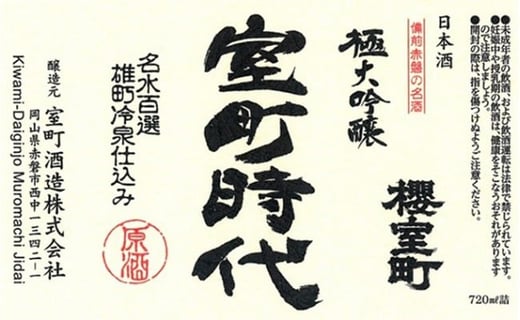 ●未成年者の飲酒、および飲酒運転は法律で禁じられています。
●妊娠中や授乳期の飲酒は、健康をそこなうおそれがあります
ので注意しましょう。
●開封の際は、指を傷つけぬようご注意ください。
日本酒
備前赤磐の名酒
極大吟醸
櫻室町
720㎖詰
室町時代
名水百選
雄町冷泉仕込み
原酒
醸造元 室町酒造株式会社
岡山県赤磐市西中一三四二-一
Kiwami-Daiginjo Muromachi Jidai